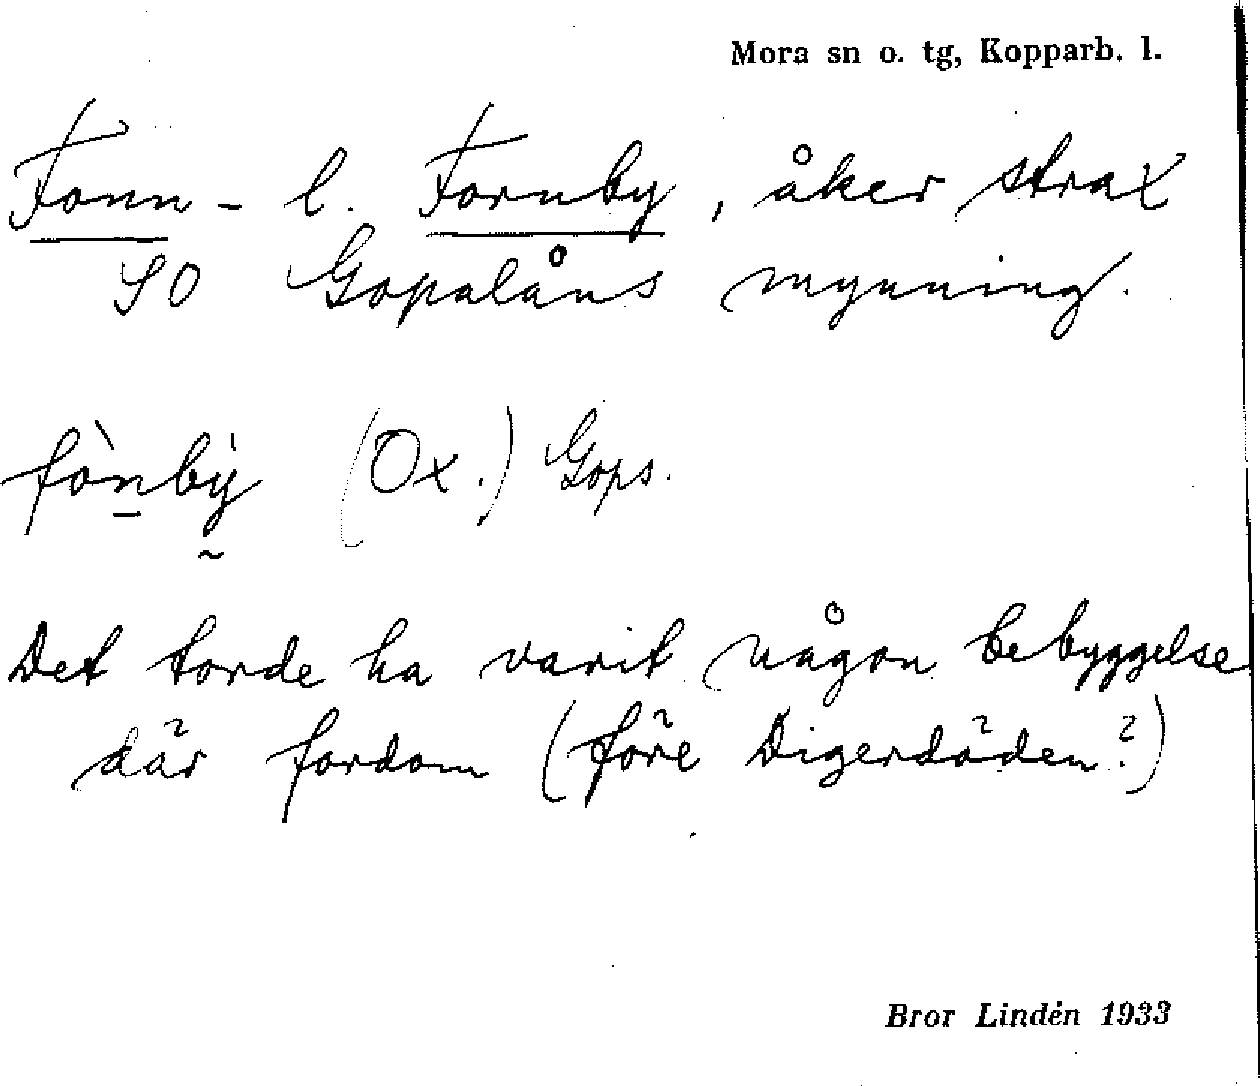 Mora sn o. tg, Kopparb. l.
Fonn- l. Fornby, åker strax
SO Gopalåns mynning.
fònbỳ (Ox.) Gops.
Det torde ha varit någon bebyggelse
där fordom (före Digerdöden?)
Bror Lindén 1933